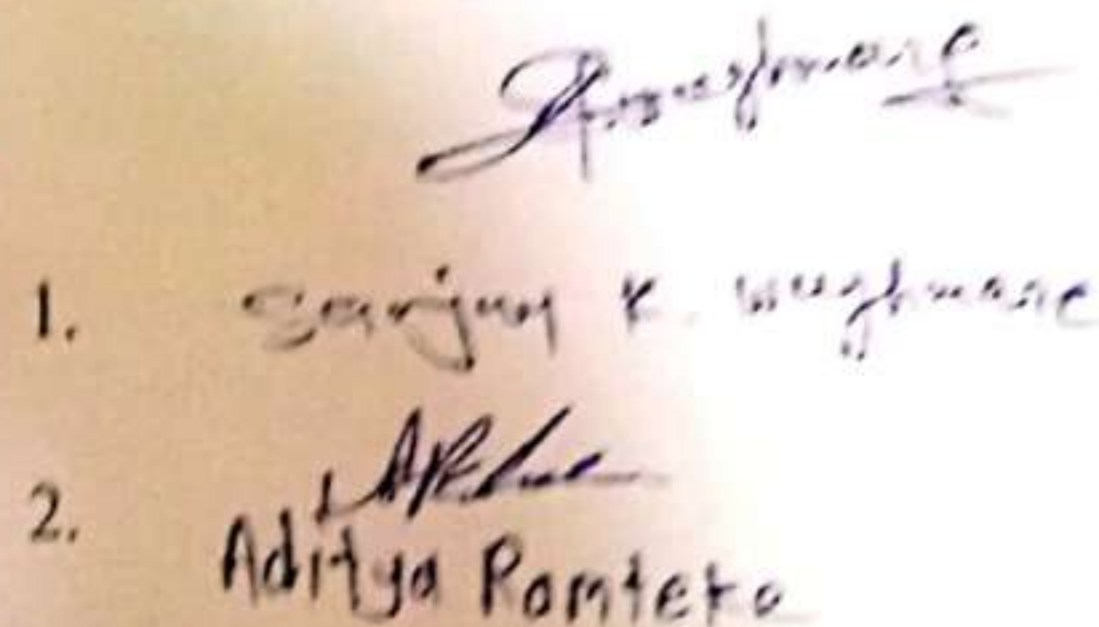 1. Sanjay K. Waghmare
2.
Aditya Ramteke